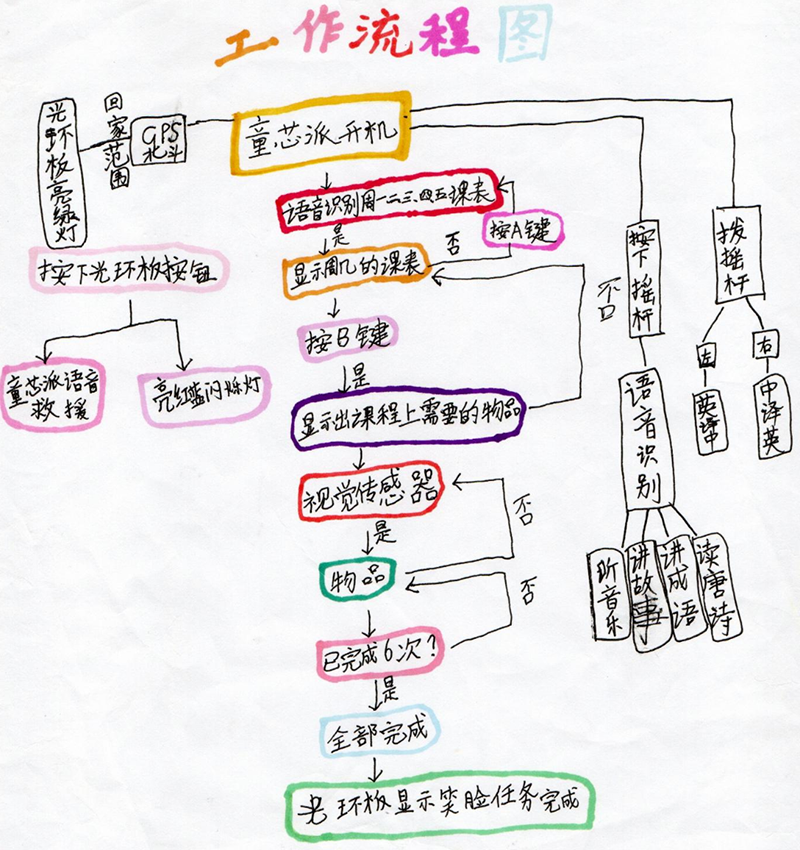 工作流程图
童芯派开机
GPS
北斗
回家范围
光环板亮绿灯
语音识别周一二三、四五课表
是
否
按A键
显示周几的课表
按下光环板按钮
童芯派语音
救援
亮红蓝闪烁灯
按B键
是
显示出课程上需要的物品
视觉传感器
是
否
物品
否
已完成6次？
是
全部完成
光环板显示笑脸任务完成
按下摇杆
否
语音识别
听音乐
讲故事
讲成语
读唐诗
拨摇杆
左
右
英译中
中译英